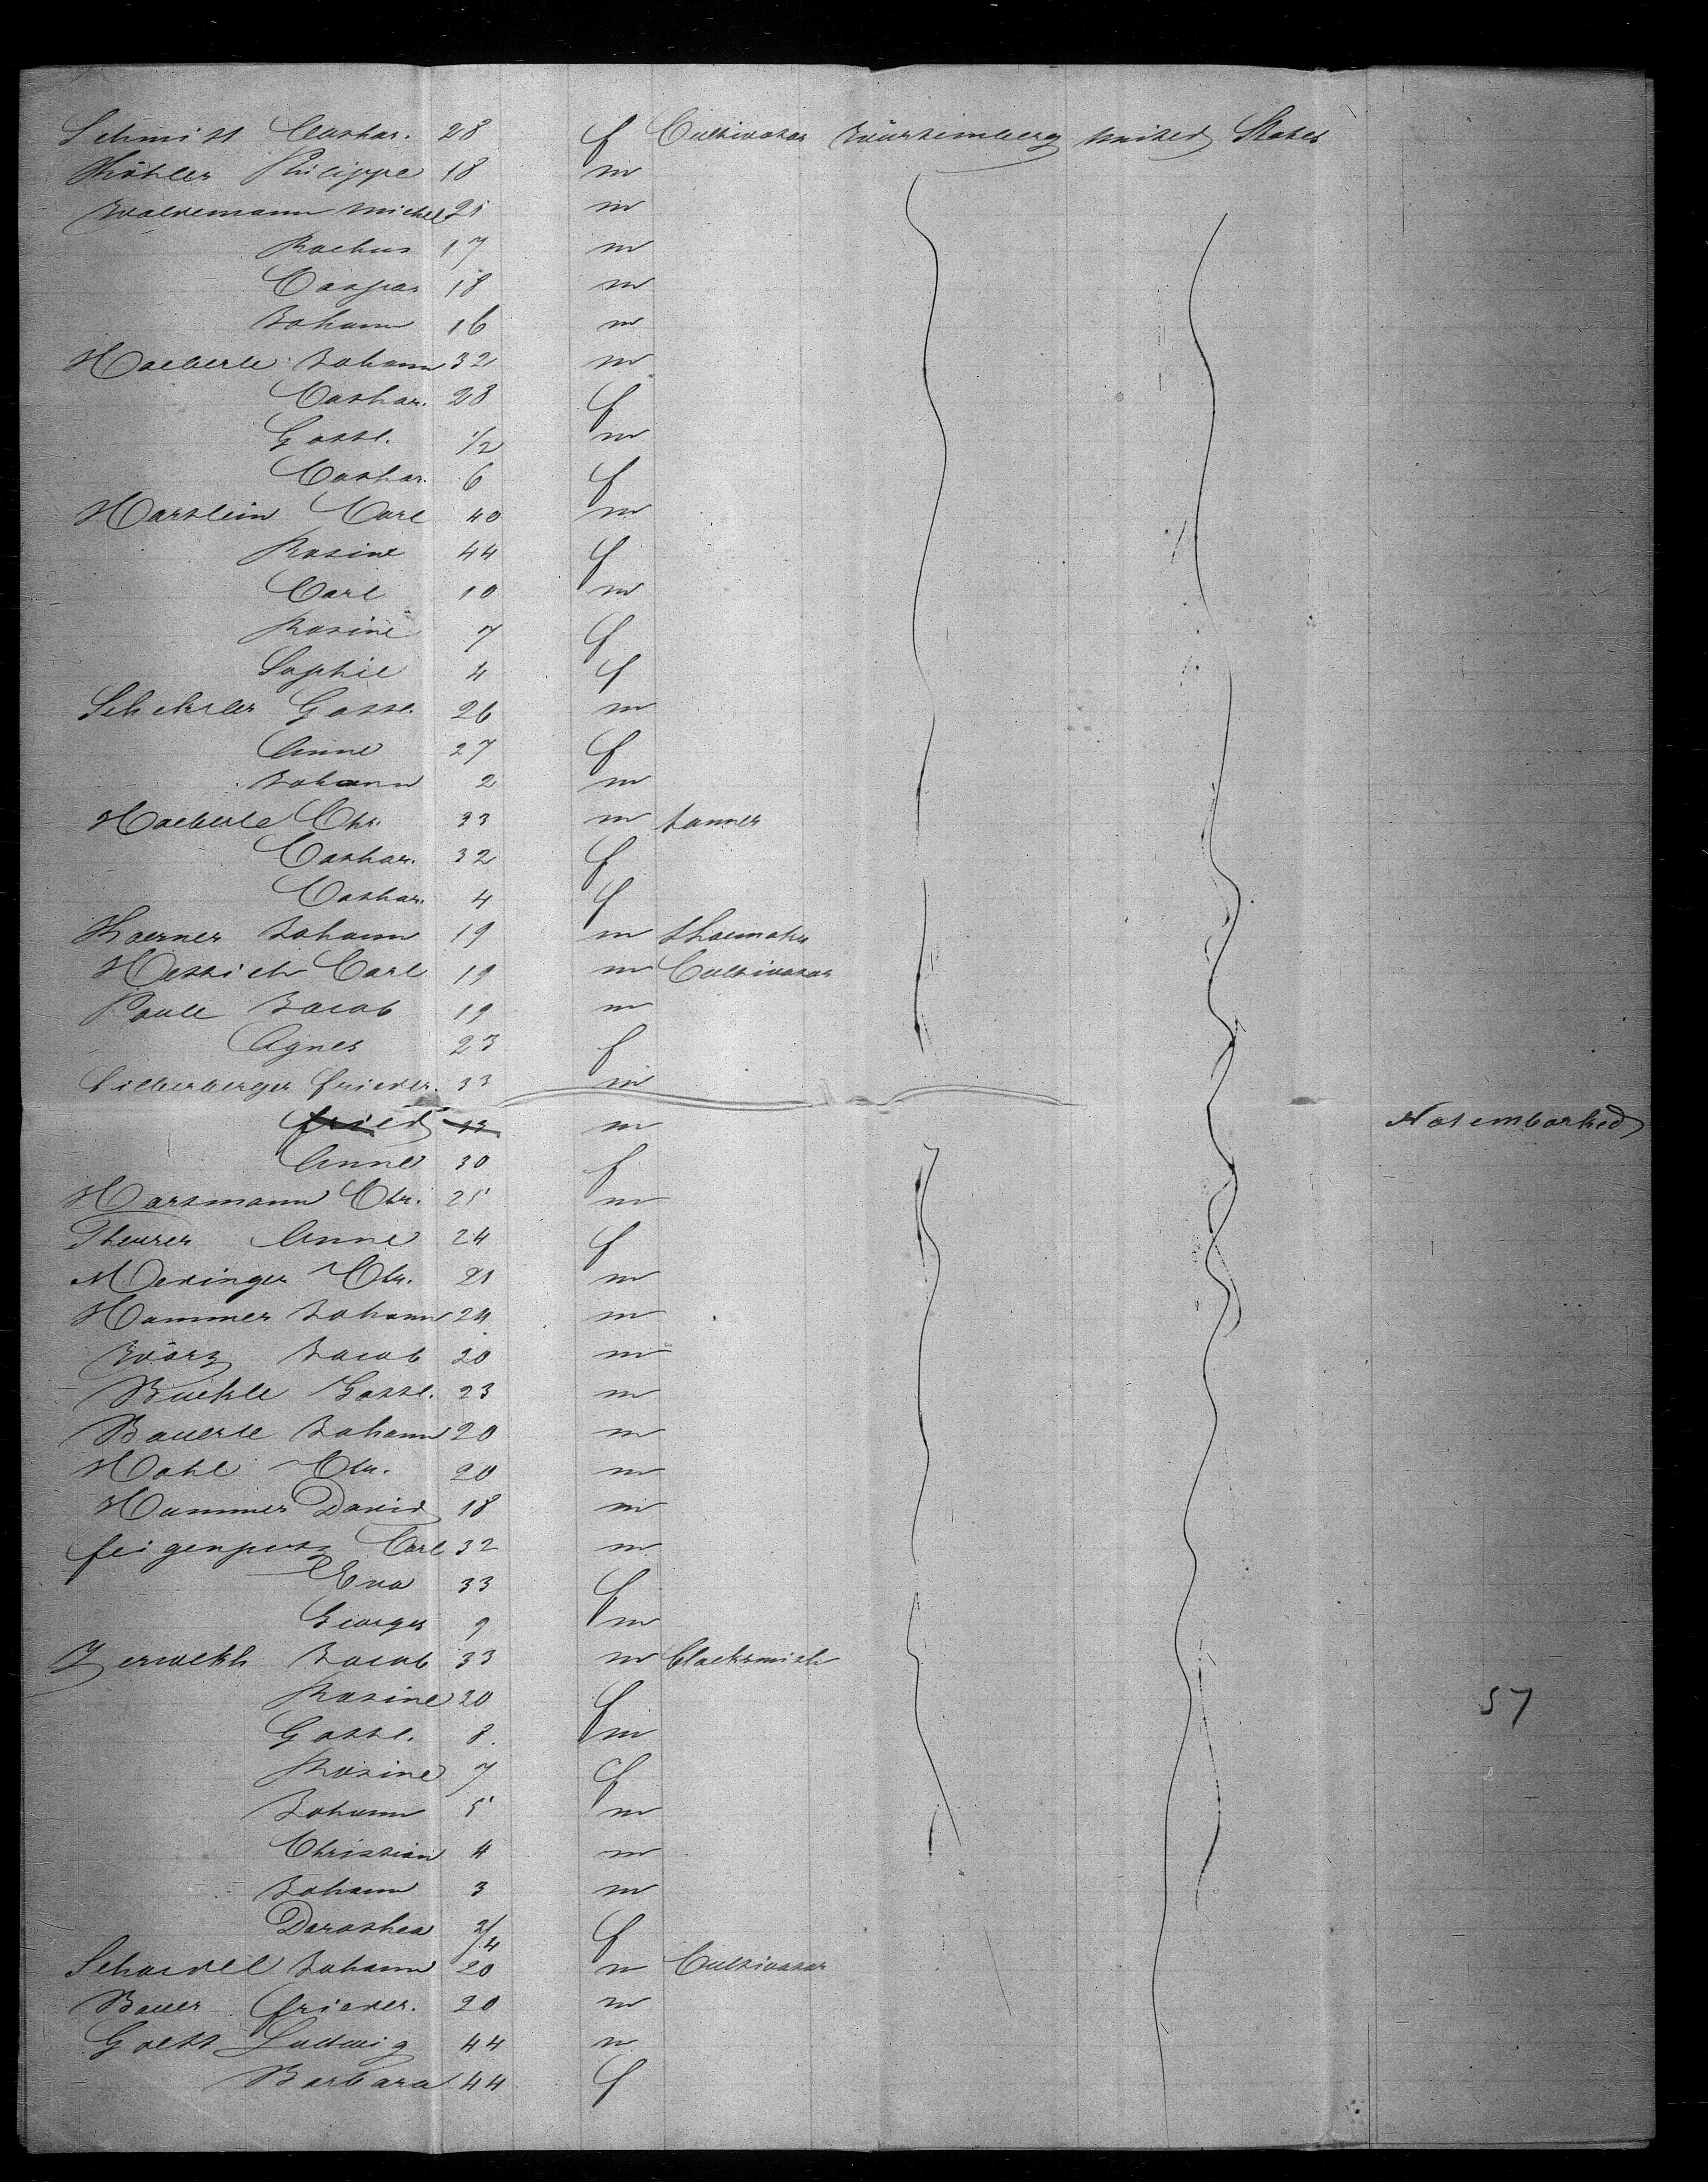 Schmitt Cathar. 28 f Cultivator Würtemberg United States
Köhler Philippe 18 m
Waldemann Michel 21 m
Rochus 17 m
Caspar 18 m
Johann 16 m
Haeberle Johann 32 m
Cathar. 28 f
Gottl. 1/2 m
Cathar. 6 f
Hartlein Carl 40 m
Rosine 44 f
Carl 10 m
Rosine 7 f
Sophie 4 f
Gottl. 26 m
Anne 27 f
Johann 2 m
Haeberle Chr. 33 m tanner
Cathar. 32 f
Cathar. 4 f
Koerner Johann 19 m shoemaker
Hettich Carl 19 m Cultivator
Paule Jacob 19 m
Agnes 23 f
Silberberger frieder. 33 m
fried 13 m Not embarked
Anne 30 f
Hartmann Chr. 25 m
Theurer Anne 24 f
Medinger Chr. 21 m
Hammer Johann 24 m
Wörz Jacob 20 m
Buckle Gottl. 23 m
Bauerle Johann 20 m
Hohl Chr. 20 m
Hammer David 18 m
feigenputz Carl 32 m
Eva 33 f
Georges 9 m
Zerwekh Jacob 33 m blacksmith
Rosine 30 f 57
Gottl. 8. m
Rosine 7 f
Johann 5 m
Christian 4 m
Johann 3 m
Dorothea 3/4 f
Schaedel Johann 20 m Cultivator
Bauer frieder. 20 m
Goett Ludwig 44 m
Barbara 44 f